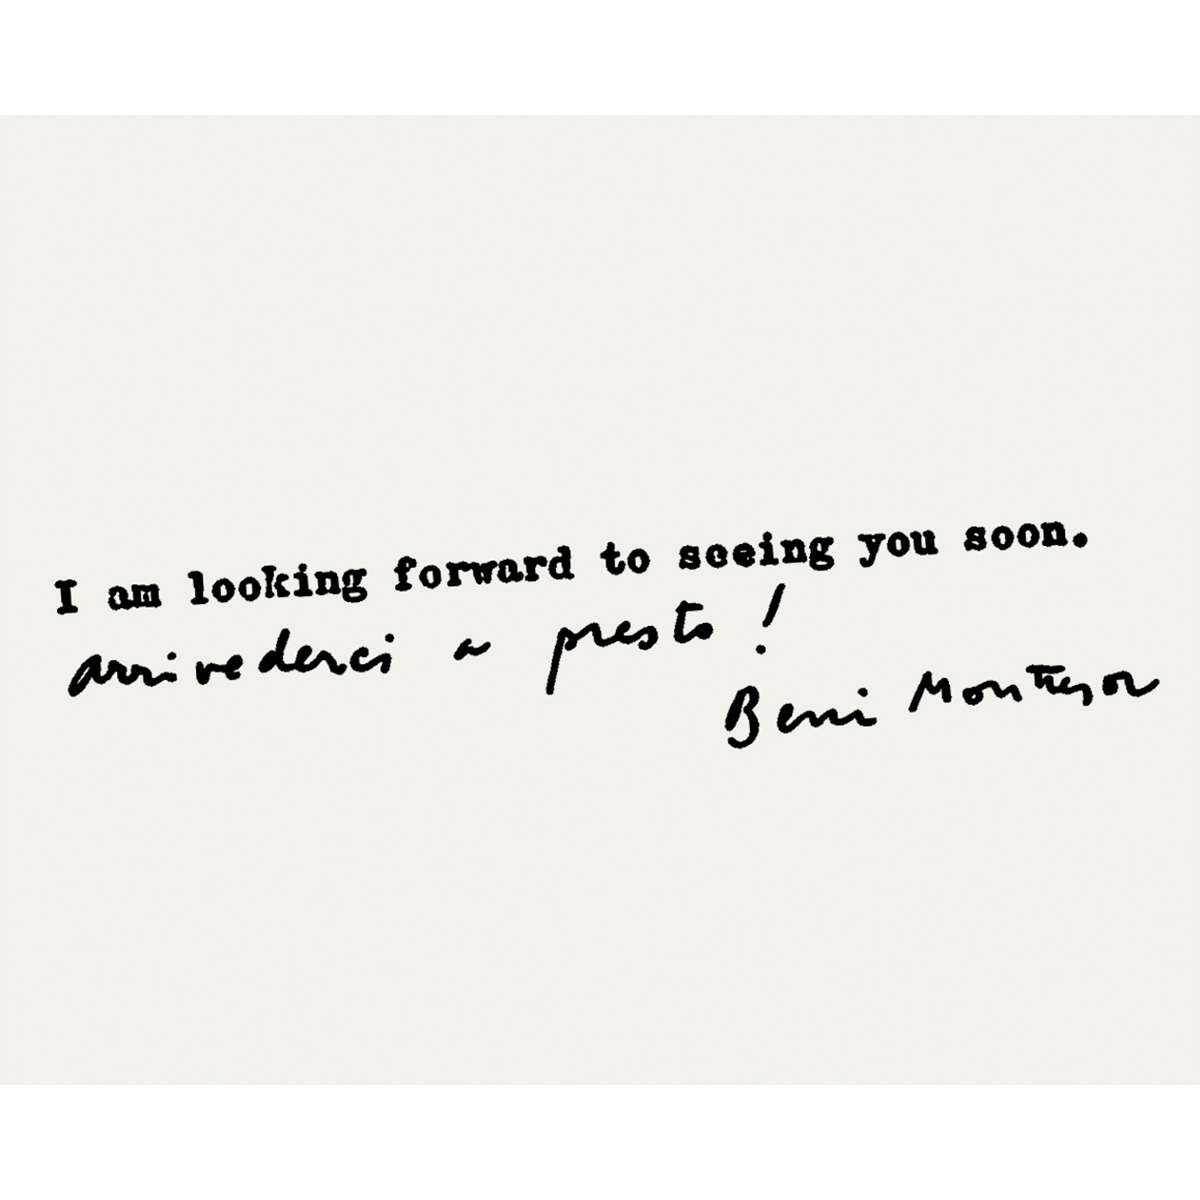 I am looking forward to seeing you soon.
arrivederci a presto!
Beni Montresor